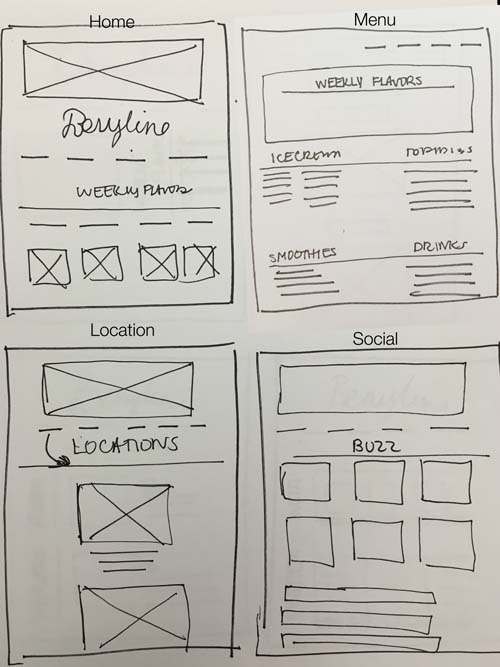 Home
WEEKLY FLAVORS
Menu
WEEKLY FLAVORS
ICECREAM
TOPPINGS
SMOOTHIES
DRINKS
Location
LOCATIONS
Social
BUZZ